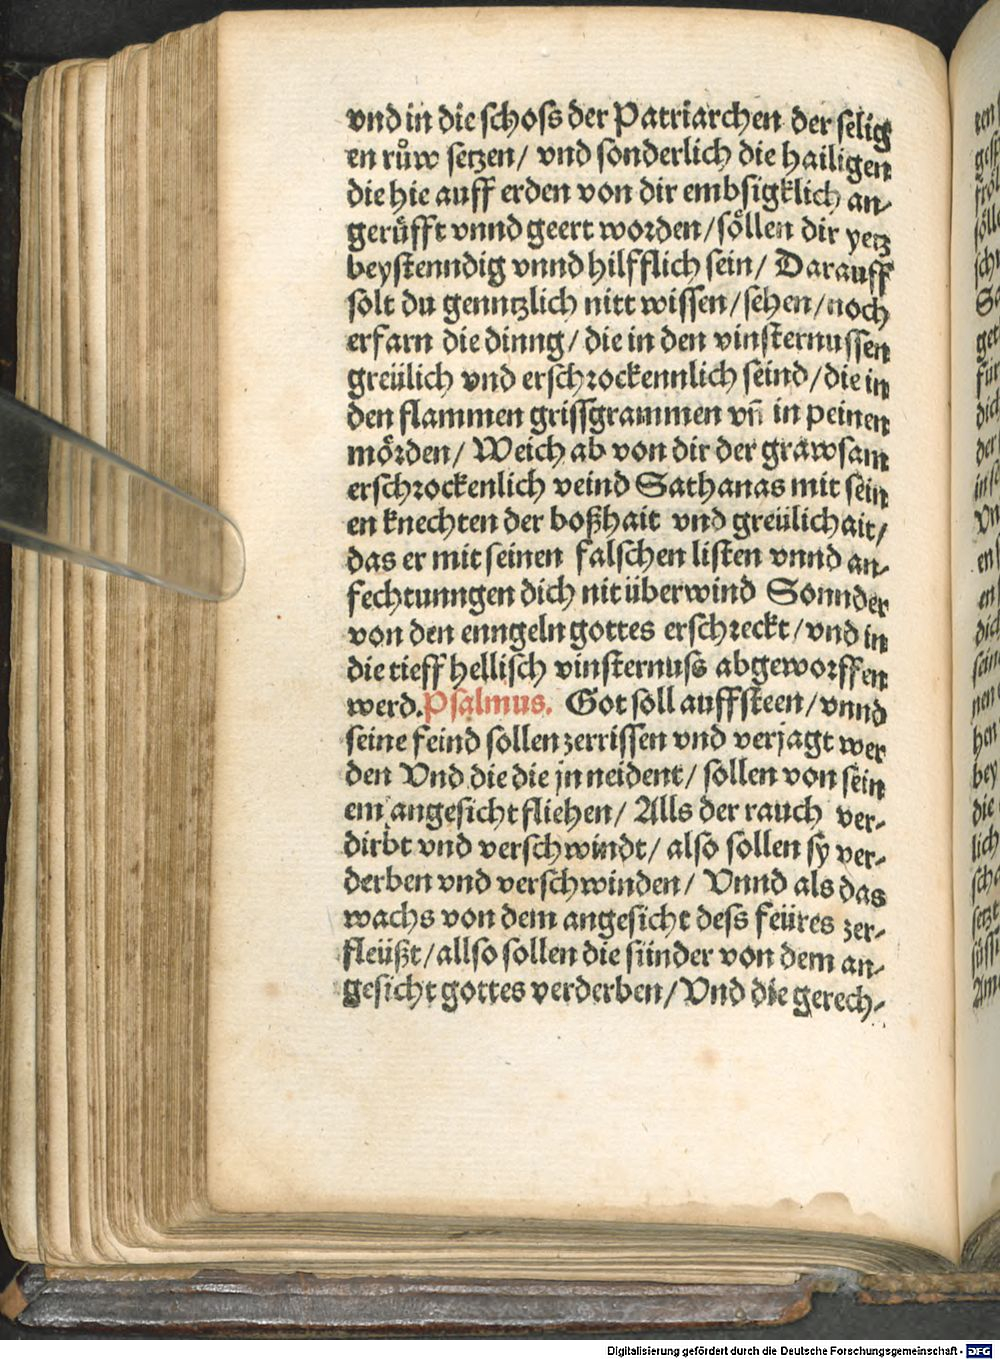 vnd in die schoss der Patriarchen der selig
en růw setzen/ vnd sonderlich die hailigen
die hie auff erden von dir embsigklich an-
gerüfft vnnd geert worden/söllen dir yetz
beystenndig vnnd hilfflich sein/ Darauff
solt du genntzlich nitt wissen/sehen/noch
erfarn die dinng/ die in den vinsternussen
greülich vnd erschrockennlich seind/die in
den flammen grissgrammen vñ in peinen
mörden/ Weich ab von dir der grawsam
erschrockenlich veind Sathanas mit sein
en knechten der boßhait vnd greülichait/
das er mit seinen falschen listen vnnd an-
fechtunngen dich nit überwind Sonnder
von den enngeln gottes erschreckt/vnd in
die tieff hellisch vinsternuss abgeworffen
werd. Psalmus. Got soll auffsteen/vnnd
seine feind sollen zerrissen vnd verjagt wer
den Vnd die die jn neident/ sollen von sein
em angesicht fliehen/ Alls der rauch ver-
dirbt vnd verschwindt/ also sollen sy ver-
derben vnd verschwinden/ Vnnd als das
wachs von dem angesicht dess feüres zer-
fleüßt/allso sollen die sünder von dem an-
gesicht gottes verderben/Vnd die gerech-
Digitalisierung gefördert durch die Deutsche Forschungsgemeinschaft - DFG